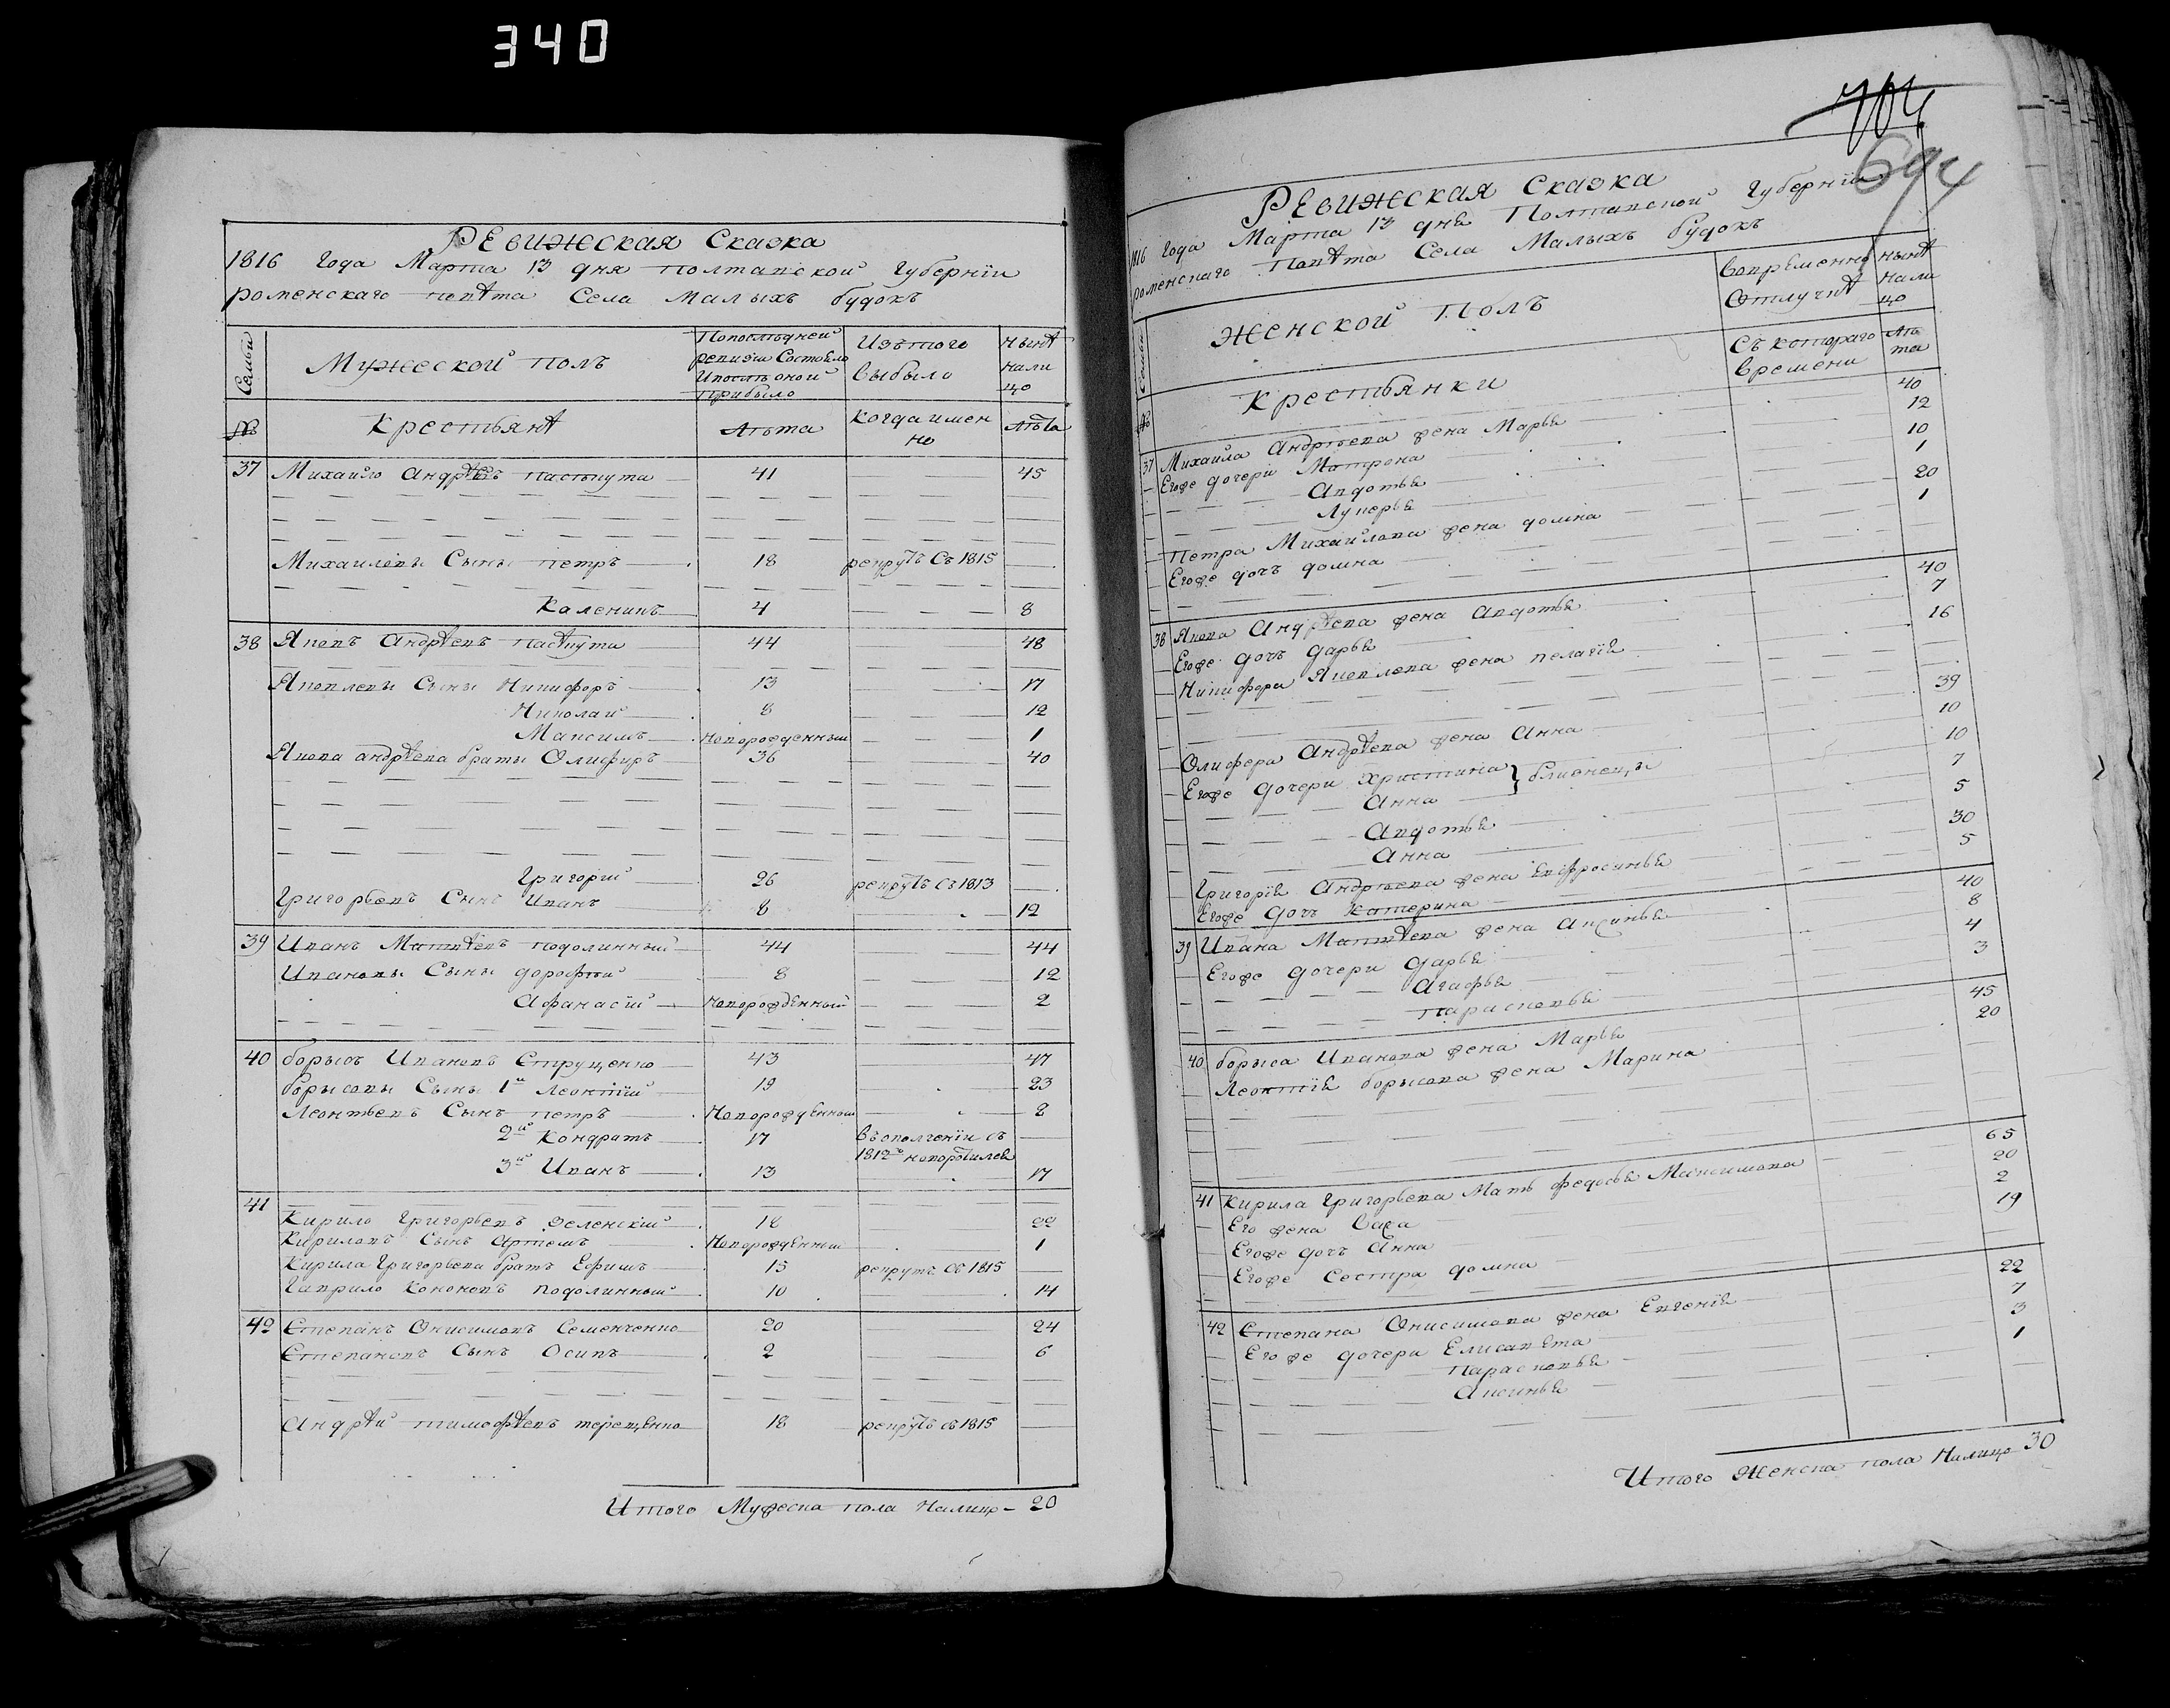 340
Ревижская Сказка
1816 Года Марта 13 дня Полтавской Губернїи
роменскаго повѣта Села Малыхъ будокъ
Семьи
Мужеской полъ
Попослѣдней ревизїи Состояло Ипослѣ оной прибыло
Изътого выбыло
нынѣ нали цо
№
Крестьянѣ
Лѣта
когда имен но
лѣта
37 Михайло Андрѣевъ пастъпута 41 45
Михаиловы Сыны петръ 18 рекрутъ Съ 1815
Каленикъ 4 8
38 Яковъ Андрѣевъ пастпута 44 48
Яковлевы Сыны Никифоръ 13 17
Николай 8 12
Максимъ новорожденный 1
Якова андрѣева браты Олиферъ 36 40
Григорий 26 рекрутъ съ 1813
Григорьевъ Сынъ Иванъ 8 12
39 Иванъ Матвѣевъ подолинный 44 44
Ивановы Сыны дорофѣй 8 12
Афанасїй новорожденный 2
40 борысъ Ивановъ Струценко 43 47
борысовы Сыны 1й Леонтїй 19 23
Леонтьевъ Сынъ петръ новорожденный 2
2й Кондратъ 17 въ ополченїи съ 1812го невозвратился
3й Иванъ 13 17
41
Кирило Григорьевъ Зеленскїй 18 22
Кириловъ Сынъ Артемъ новорожденный 1
Кирила Григорьева братъ Ефимъ 15 рекрутъ съ 1815
Гаврило Кононовъ подолинный 10 14
42 Степанъ Онисимовъ Семенченко 20 24
Степановъ Сынъ Осипъ 2 6
Андрѣй тимофѣевъ терещенко 18 рекрутъ съ 1815
Итого Мужеска пола Налицо – 20
704
694
Ревижская Сказка
1816 года Марта 13 дня Полтавской Губернїи
роменскаго Повѣта Села Малыхъ будокъ
Семьи
Женской Полъ
вовременной отлучкѣ
нынѣ нали цо
№
Крестьянки
Съ котораго времени
лѣта
37 Михаила Андрѣева жена Марья 40
Егоже дочери Матрона 12
Авдотья 10
Лукерья 1
Петра Михайлова жена домна 20
Егоже дочъ домна 1
38 Якова Андрѣева жена Авдотья 40
Егоже дочъ дарья 7
Никифора Яковлева жена пелагїя 16
Олифера Андрѣева жена Анна 39
Егоже дочери Христина } близнецы 10
Анна 10
Авдотья 7
Анна 5
Григорїя Андрѣева жена Евфросинья 30
Егоже дочъ катерина 5
39 Ивана Матвѣева жена Аксинья 40
Егоже дочери дарья 8
Агафья 4
Парасковья 3
40 борыса Иванова жена Марья 45
Леонтїя борысова жена Марина 20
41 Кирила Григорьева Мать федосья Максимова 65
Его жена Васа 20
Егоже дочъ Анна 2
Егоже Сестра домна 19
42 Степана Онисимова жена Евгенїя 22
Егоже дочери Елисавета 7
Парасковья 3
Аксинья 1
Итого Женска пола Налицо 30